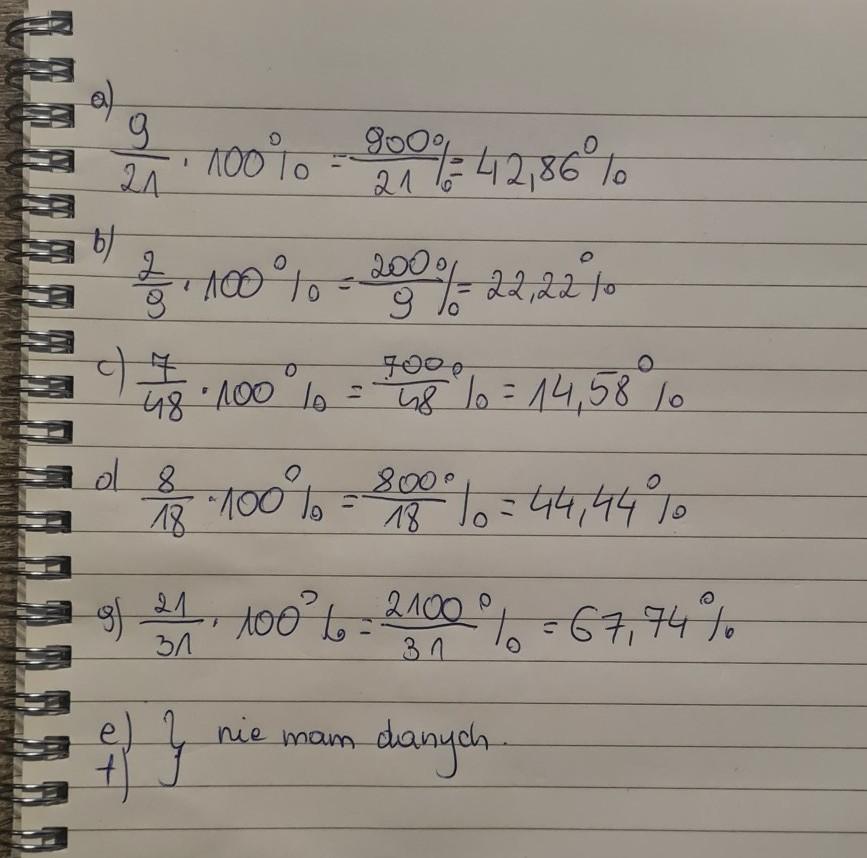 a) 9/21 · 100% = 900/21 % = 42,86%
b) 2/9 · 100% = 200/9 % = 22,22%
c) 7/48 · 100% = 700/48 % = 14,58%
d 8/18 · 100% = 800/18 % = 44,44%
g) 21/31 · 100% = 2100/31 % = 67,74%
e) } nie mam danych.
f)